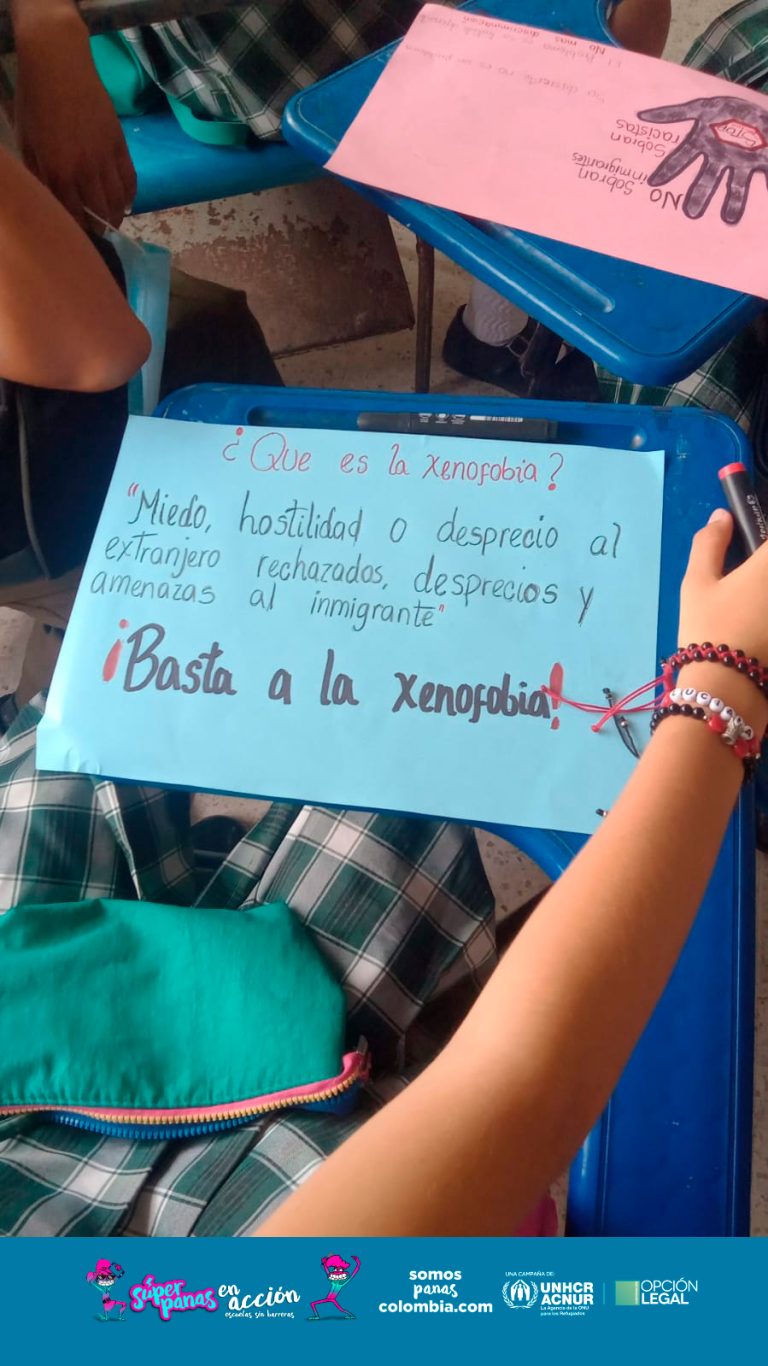 ¿Que es la xenofobia?
"Miedo, hostilidad o desprecio al
extranjero rechazados, desprecios y
amenazas al inmigrante"
¡Basta a la xenofobia!
No sobran
inmigrantes
Sobran
racistas
STOP
No mas discriminación
Súper
panas
en
acción
escuelas sin barreras
somos
panas
colombia.com
UNA CAMPAÑA DE:
UNHCR
ACNUR
La Agencia de la ONU
para los Refugiados
OPCIÓN
LEGAL